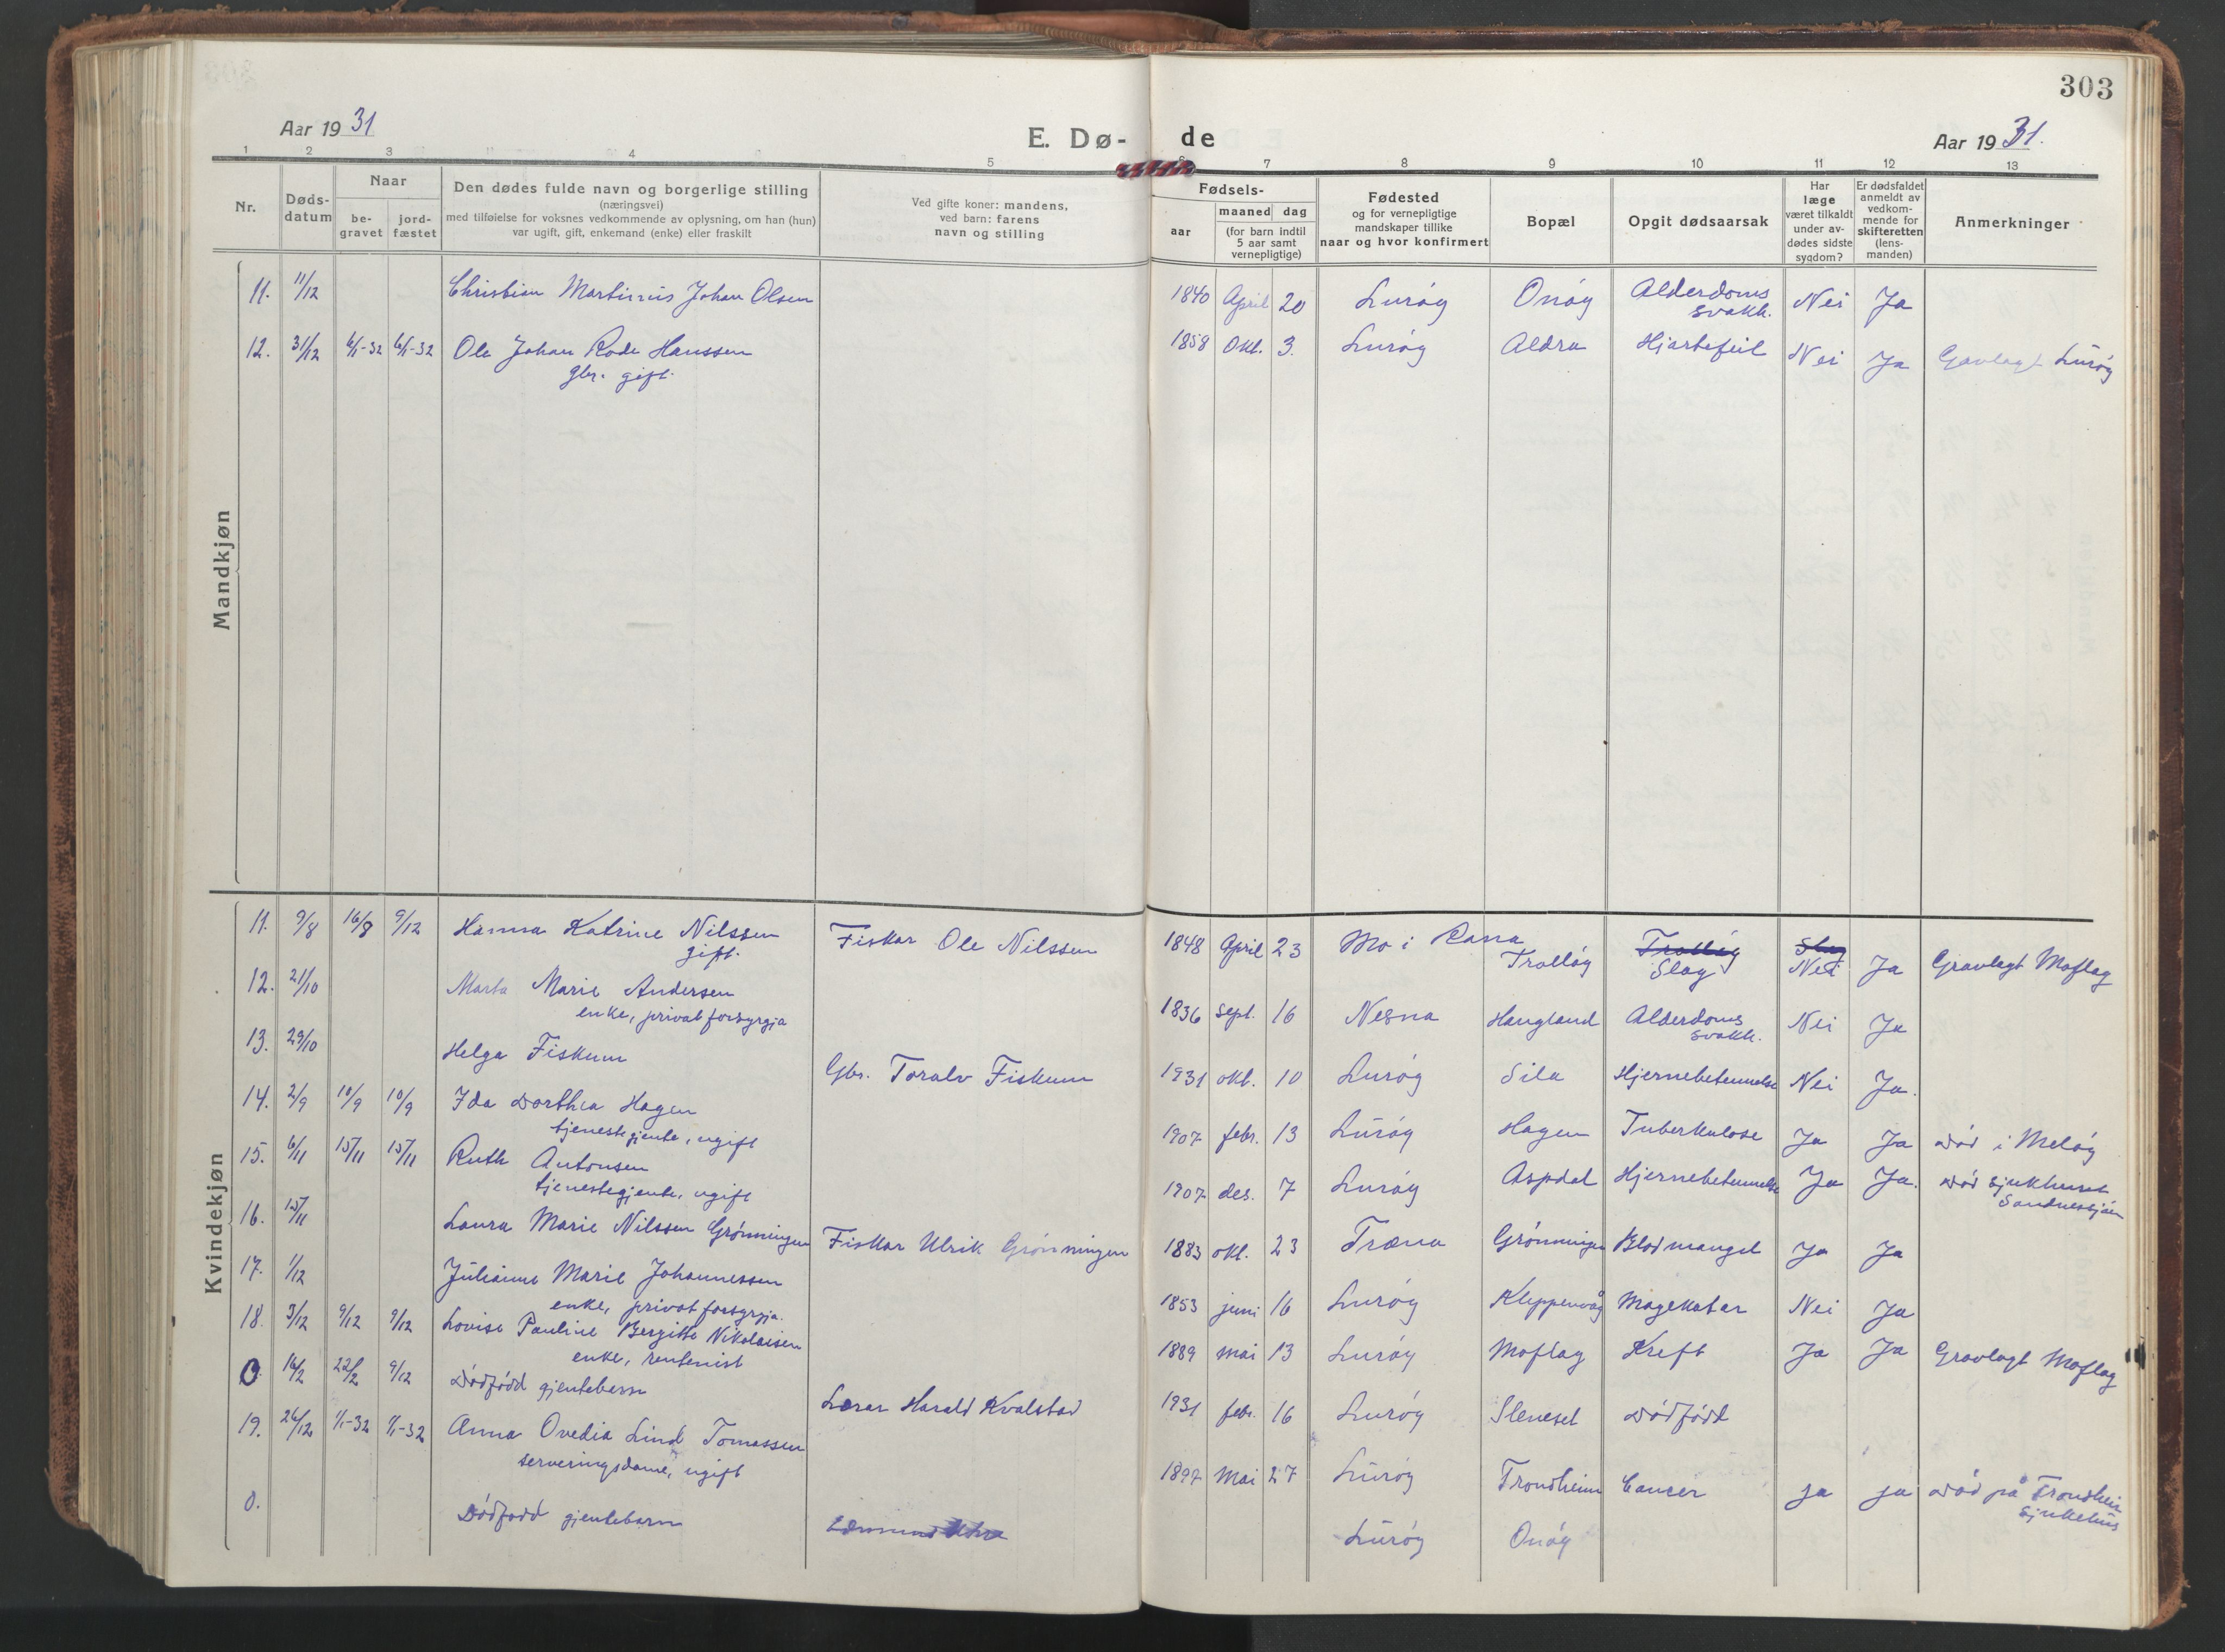 303
Aar 1931
E. Dø-
de
Aar 1931.
1 2 3 4 5 6 7 8 9 10 11 12 13
Nr.
Døds-
datum
Naar
be-
gravet
jord-
fæstet
Den dødes fulde navn og borgerlige stilling
(næringsvei)
med tilføielse for voksnes vedkommende av oplysning, om han (hun)
var ugift, gift, enkemand (enke) eller fraskilt
Ved gifte koner: mandens,
ved barn: farens
navn og stilling
Fødsels-
aar
maaned dag
(for barn indtil
5 aar samt
vernepligtige)
Fødested
og for vernepligtige
mandskaper tillike
naar og hvor konfirmert
Bopæl
Opgit dødsaarsak
Har
læge
været tilkaldt
under av-
dødes sidste
sygdom?
Er dødsfaldet
anmeldt av
vedkom-
mende for
skifteretten
(lens-
manden)
Anmerkninger
Mandkjøn
11. 11/12 Christian Martinius Johan Olsen 1840 April 20 Lurøy Onøy Alderdoms Nei Ja
svakh.
12. 31/12 6/1-32 6/1-32 Ole Johan Rode Hanssen 1858 Okt. 3. Lurøy Aldra Hjartefeil Nei Ja Gravlagt Lurøy
gbr. gift.
Kvindekjøn
11. 9/8 16/8 9/12 Hanna Katrine Nilssen Fiskar Ole Nilssen 1848 April 23 Mo i Rana Trolløy Trolløy Slag
gift. Slag Nei Ja Gravlagt Moflag
12. 21/10 Marta Marie Andersen 1836 Sept. 16 Nesna Haugland Alderdoms Nei Ja
enke, privat forsyrgja svakh.
13. 29/10 Helga Fiskum Gbr. Toralv Fiskum 1931 okt. 10 Lurøy Sila Hjernebetennelse Nei Ja.
14. 2/9 10/9 10/9 Ida Dorthea Hagen 1907 febr. 13 Lurøy Hagen Tuberkulose Ja Ja Død i Meløy
tjenestegjente, ugift
15. 6/11 15/11 15/11 Ruth Antonsen 1907 des. 7 Lurøy Aspdal Hjernebetennelse Ja Ja. Død sjukhuset
tjenestegjente, ugift Sandnessjøen
16. 15/11 Laura Marie Nilssen Grønningen Fiskar Ulrik Grønningen 1883 okt. 23 Træna Grønningen Blodmangel Ja Ja
17. 1/12 Julianne Marie Johannessen 1853 juni 16 Lurøy Kleppenvåg Magekatar Nei Ja
enke, privat forsyrgja.
18. 3/12 9/12 9/12 Lovise Pauline Bergitte Nikolaisen 1889 mai 13 Lurøy Moflag Kreft Ja Ja Gravlagt Moflag
enke, rentenist
0. 16/2 22/2 9/12 Dødfødd gjentebarn Lærar Harald Kvalstad 1931 febr. 16 Lurøy Sleneset Dødfødd
19. 26/12 1/1-32 1/1-32 Anna Ovedia Lind Tomassen 1897 Mai 27 Lurøy Trondheim Cancer ja ja Død på Trondheim
serveringsdame, ugift sjukehus
0. Dødfødd gjentebarn Lurøy Onøy